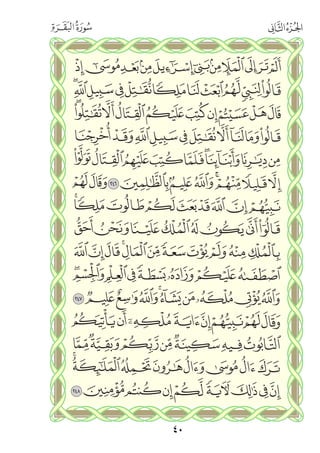 الجزء الثاني
سورة البقرة
ألم تر إلى الملإ من بني إسرائيل من بعد موسى إذ
قالوا لنبي لهم ابعث لنا ملكا نقاتل في سبيل الله
قال هل عسيتم إن كتب عليكم القتال ألا تقاتلوا
قالوا وما لنا ألا نقاتل في سبيل الله وقد أخرجنا
من ديارنا وأبنائنا فلما كتب عليهم القتال تولوا
إلا قليلا منهم والله عليم بالظالمين ٢٤٦ وقال لهم
نبيهم إن الله قد بعث لكم طالوت ملكا
قالوا أنى يكون له الملك علينا ونحن أحق
بالملك منه ولم يؤت سعة من المال قال إن الله
اصطفاه عليكم وزاده بسطة في العلم والجسم
والله يؤتي ملكه من يشاء والله واسع عليم ٢٤٧
وقال لهم نبيهم إن آية ملكه أن يأتيكم
التابوت فيه سكينة من ربكم وبقية مما
ترك آل موسى وآل هارون تحمله الملائكة
إن في ذلك لآية لكم إن كنتم مؤمنين ٢٤٨
٤٠